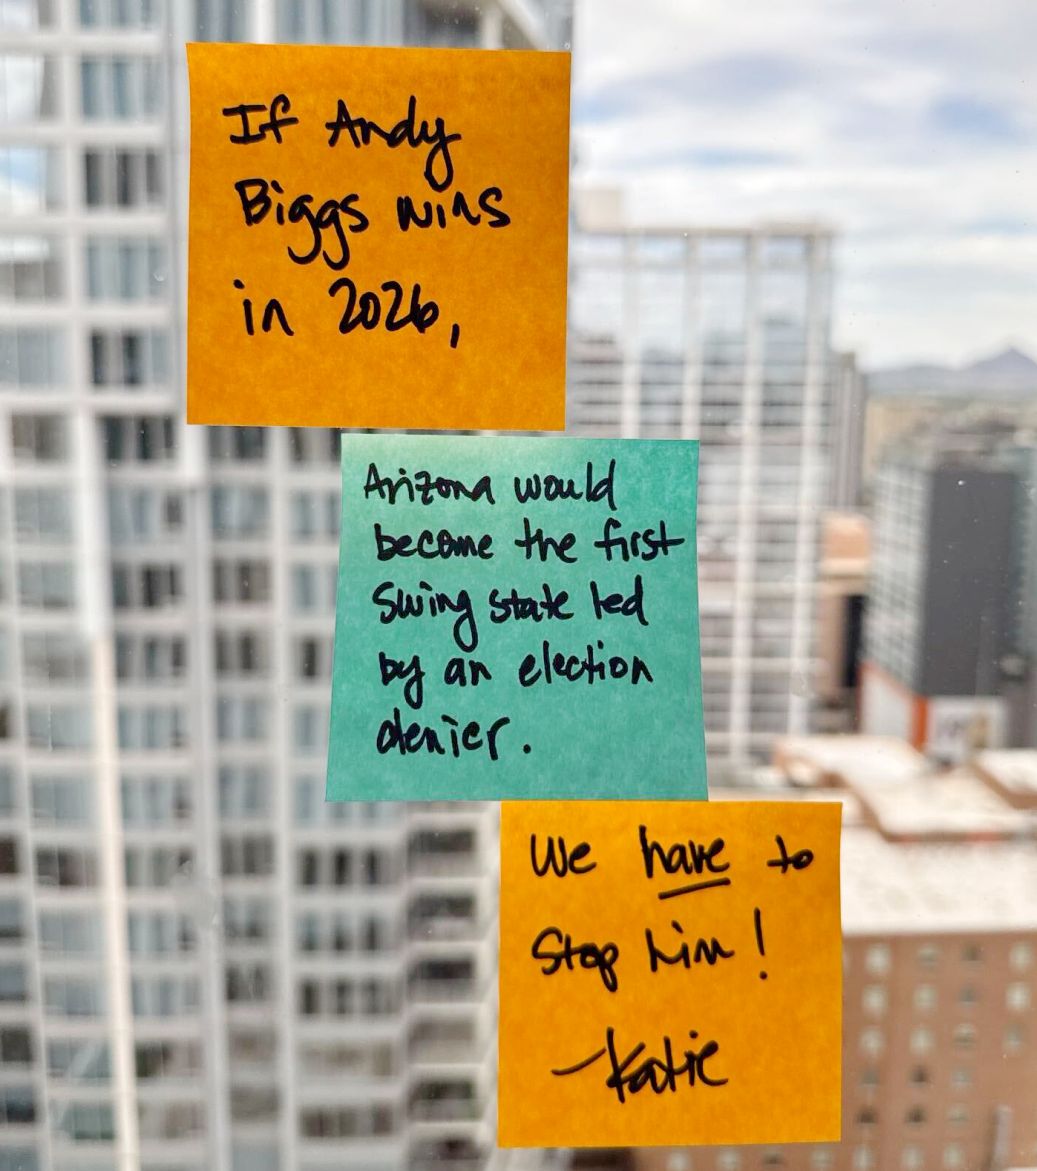 If Andy
Biggs wins
in 2026,
Arizona would
become the first
swing state led
by an election
denier.
We have to
stop him!
—Katie